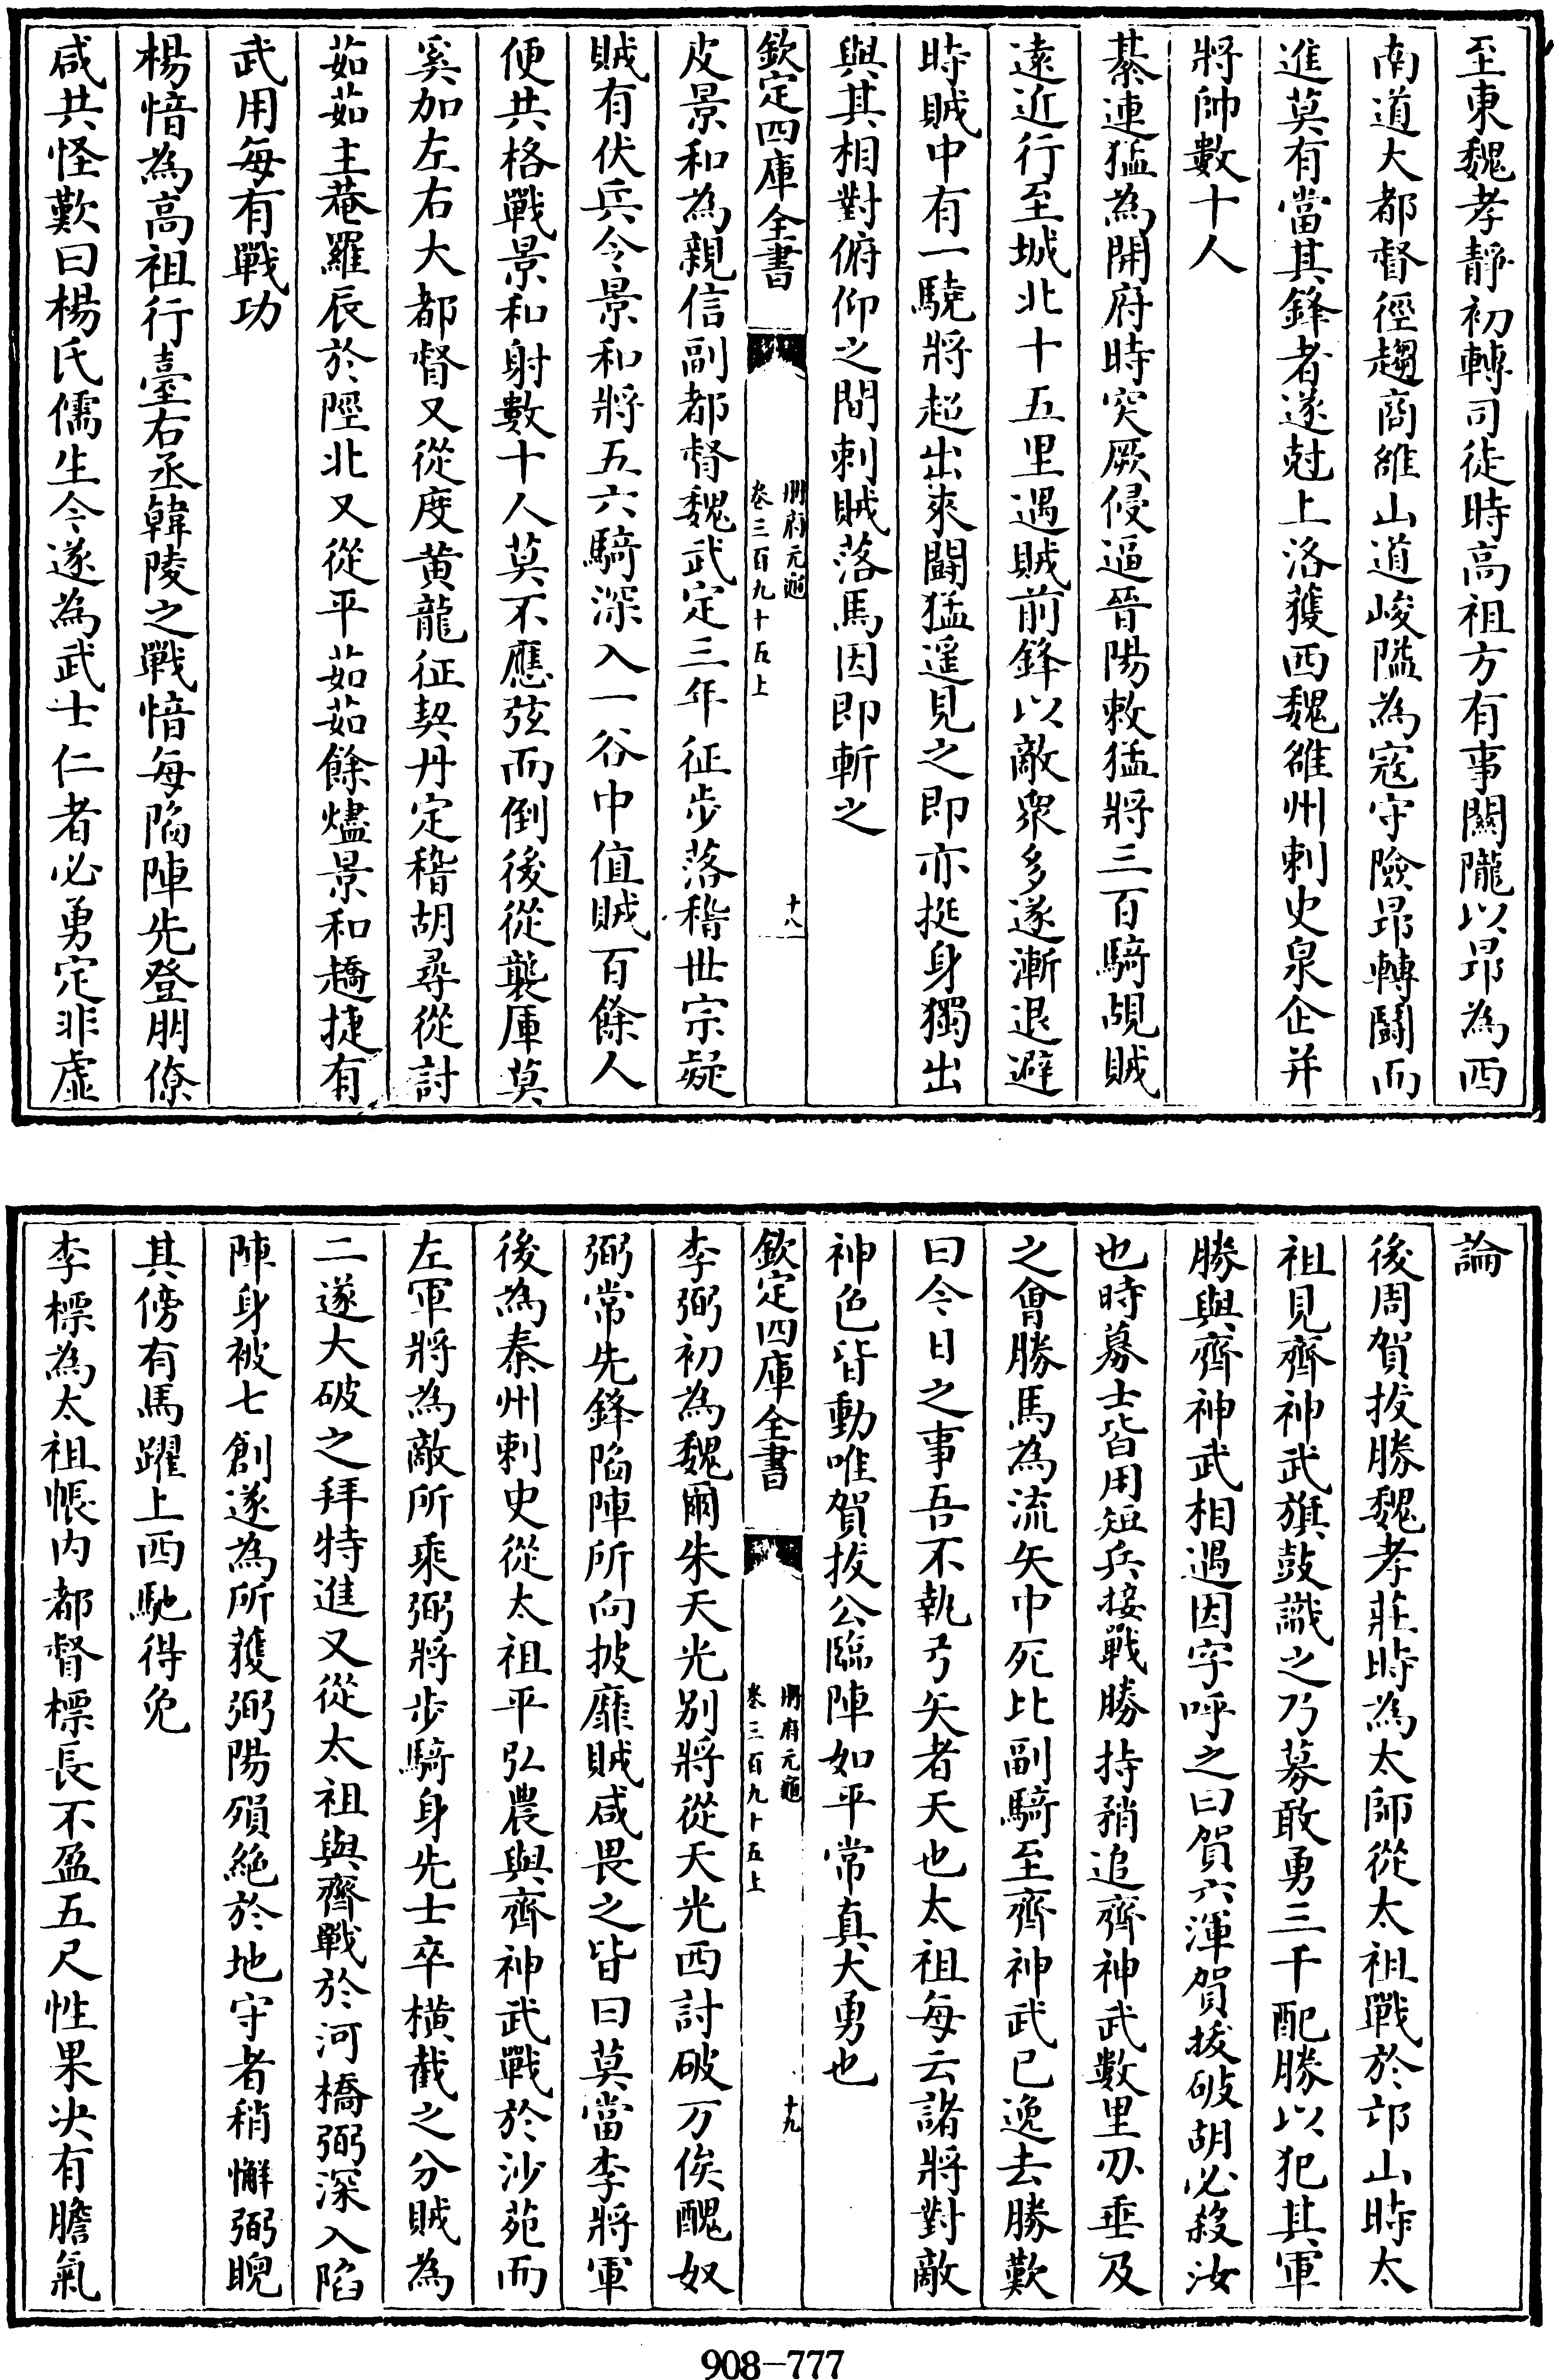 至東魏孝靜初轉司徒時高祖方有事關隴以昻為西
南道大都督徑趨商雒山道峻隘為宼守險昻轉鬭而
進莫有當其鋒者遂尅上洛獲西魏雒州刺史泉企并
將帥數十人
綦連猛為開府時突厥侵逼晉陽敕猛將三百騎覘賊
遠近行至城北十五里遇賊前鋒以敵衆多遂漸退避
時賊中有一驍將超出來鬭猛遥見之即亦挺身獨出
與其相對俯仰之間刺賊落馬因即斬之
欽定四庫全書
册府元龜
卷三百九十五上
十八
皮景和為親信副都督魏武定三年征步落稽世宗疑
賊有伏兵令景和將五六騎深入一谷中值賊百餘人
便共格戰景和射數十人莫不應弦而倒後從襲庫莫
奚加左右大都督又從度黄龍征契丹定稽胡尋從討
茹茹主菴羅辰於陘北又從平茹茹餘燼景和趫捷有
武用每有戰功
楊愔為高祖行臺右丞韓陵之戰愔每陷陣先登朋僚
咸共怪歎曰楊氏儒生今遂為武士仁者必勇定非虛
論
後周賀拔勝魏孝莊時為太師從太祖戰於邙山時太
祖見齊神武旗鼓識之乃募敢勇三千配勝以犯其軍
勝與齊神武相遇因字呼之曰賀六渾賀拔破胡必殺汝
也時募士皆用短兵接戰勝持矟追齊神武數里刃垂及
之會勝馬為流矢中死比副騎至齊神武已逸去勝歎
曰今日之事吾不執弓矢者天也太祖每云諸將對敵
神色皆動唯賀拔公臨陣如平常真大勇也
欽定四庫全書
册府元龜
卷三百九十五上
十九
李弼初為魏爾朱天光别將從天光西討破万俟醜奴
弼常先鋒陷陣所向披靡賊咸畏之皆曰莫當李將軍
後為秦州刺史從太祖平弘農與齊神武戰於沙苑而
左軍將為敵所乘弼將步騎身先士卒橫截之分賊為
二遂大破之拜特進又從太祖與齊戰於河橋弼深入陷
陣身被七創遂為所獲弼陽殞絶於地守者稍懈弼睨
其傍有馬躍上西馳得免
李標為太祖帳内都督標長不盈五尺性果决有膽氣
908-777